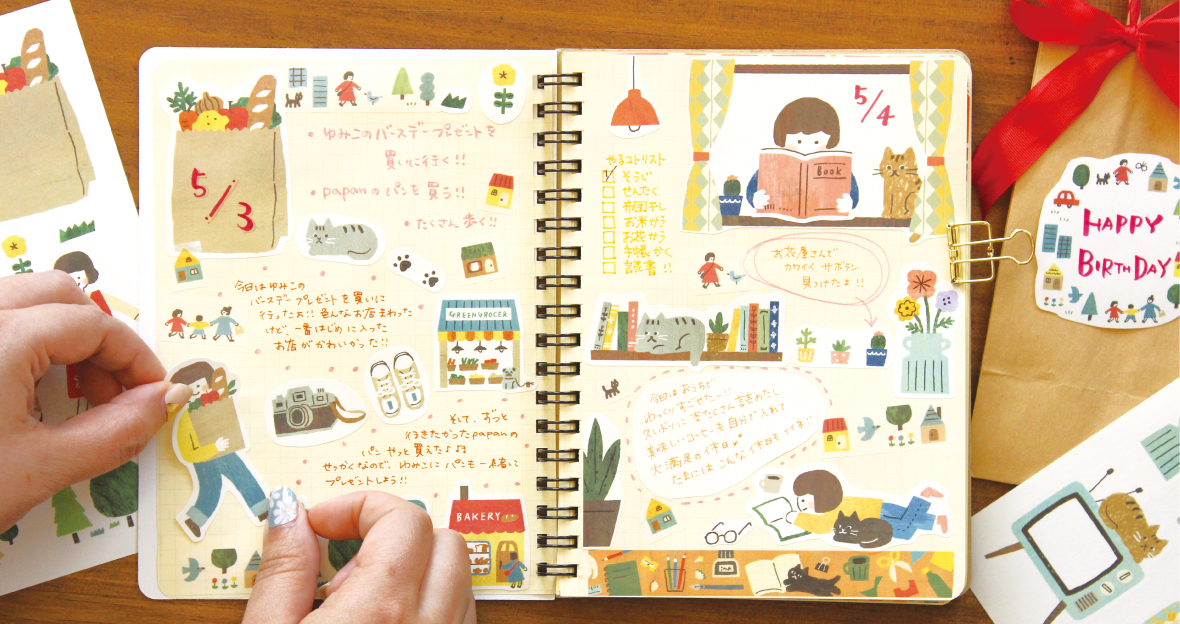 5/3
• ゆみこのバースデープレゼントを
買いに行く!!
• papanのパンを買う!!
• たくさん歩く!!
今日はゆみこの
バースデープレゼントを買いに
行ったよ!! 色んなお店まわった
けど、一番はじめに入った
お店がかわいかった!!
GREENGROCER
そして、ずっと
行きたかったpapanの
パン やっと買えたよ♪♪
せっかくなので、ゆみこにパンも一緒に
プレゼントしよう!!
BAKERY
やるコトリスト
そうじ
せんたく
布団干し
お米かう
お花かう
手帳かく
読書!!
5/4
Book
お花屋さんで
カワイイ サボテン
見つけたよ!!
今日はおうちで
ゆっくりすごせた〜!!
久しぶりに本たくさん読めたし
美味しいコーヒーも自分で入れて
大満足の休日♥
たまにはこんな休日もイイネ!!
HAPPY
BIRTHDAY